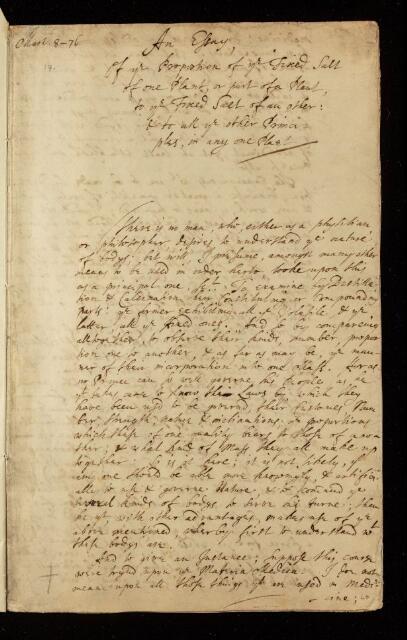 March. 8-76
An Essay,
Of ye Proportion of ye Fixed Salt
of one Plant, or part of a Plant,
to ye Fixed Salt of an other:
& to all ye other Princi-
ples, in any one Plant
There is no man, who either as a physitian,
or philosopher desires to understand ye nature
of bodys; but will, I presume, amongst many other
means to be used in order herto, looke upon this
as a principal one To examine by Distilla-
tion & Calcination their Constituting or Compounding
parts: ye former exhibiting all ye Volatile & ye
latter all ye fixed ones. And so by comparing
altogether, to observe their kinds, number, propor
tion one to another, & as far as may be, ye man-
ner of their incorporation into one Mass. For as
no Prince can so well governe his people as he
yt takes care to know the Laws by which they
have been used to be governed their Customes Num
ber, Strength, nature & inclinations, ye proportions
which those of one quality bear to those of anoa
ther; & what kind of Mass they all make up
together: so is it here; it is not likely,
any one should be able more knowingly, & artifici-
ally to use & governe Nature, & to command ye
several kinds of bodys to serve his turne; then
he yt with other advantages, makes use of yt
above mentioned, wherby first to understand wt
these bodys are.
And to give an Instance; suppose this course
were tryed upon ye Materia Medica: I do not
mean upon all those things yt are used in Medi-
cine;